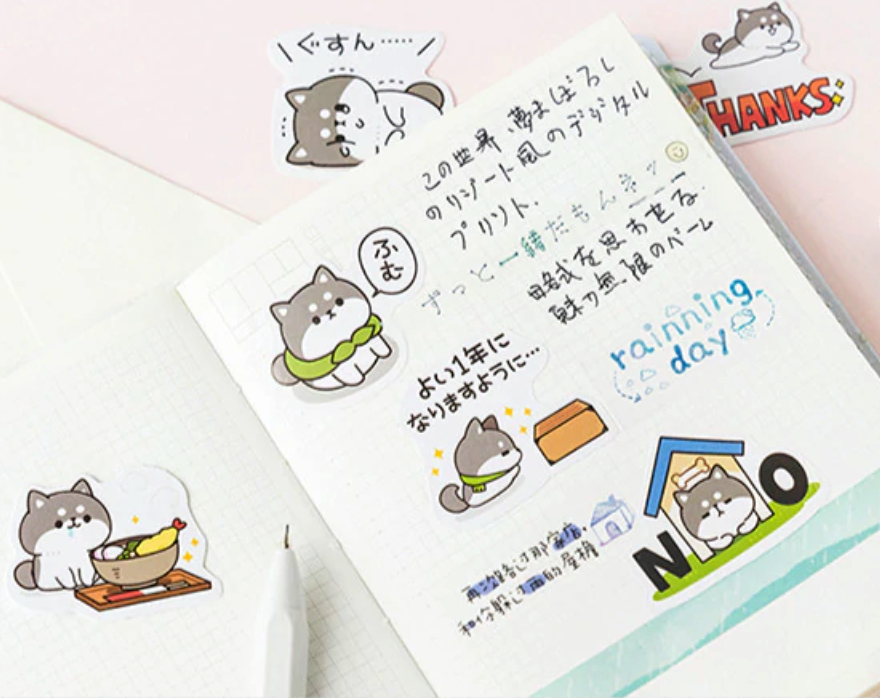 ぐすん……
THANKS
この世界、夢まぼろし
のリゾート風のデジタル
プリント.
ずっと一緒だもんネッ
略式を思わせる.
魅力無限のベーム
ふむ
よい1年に
なりますように…
rainning
day
NO
再次路过那家店,
和你躲过雨的屋檐